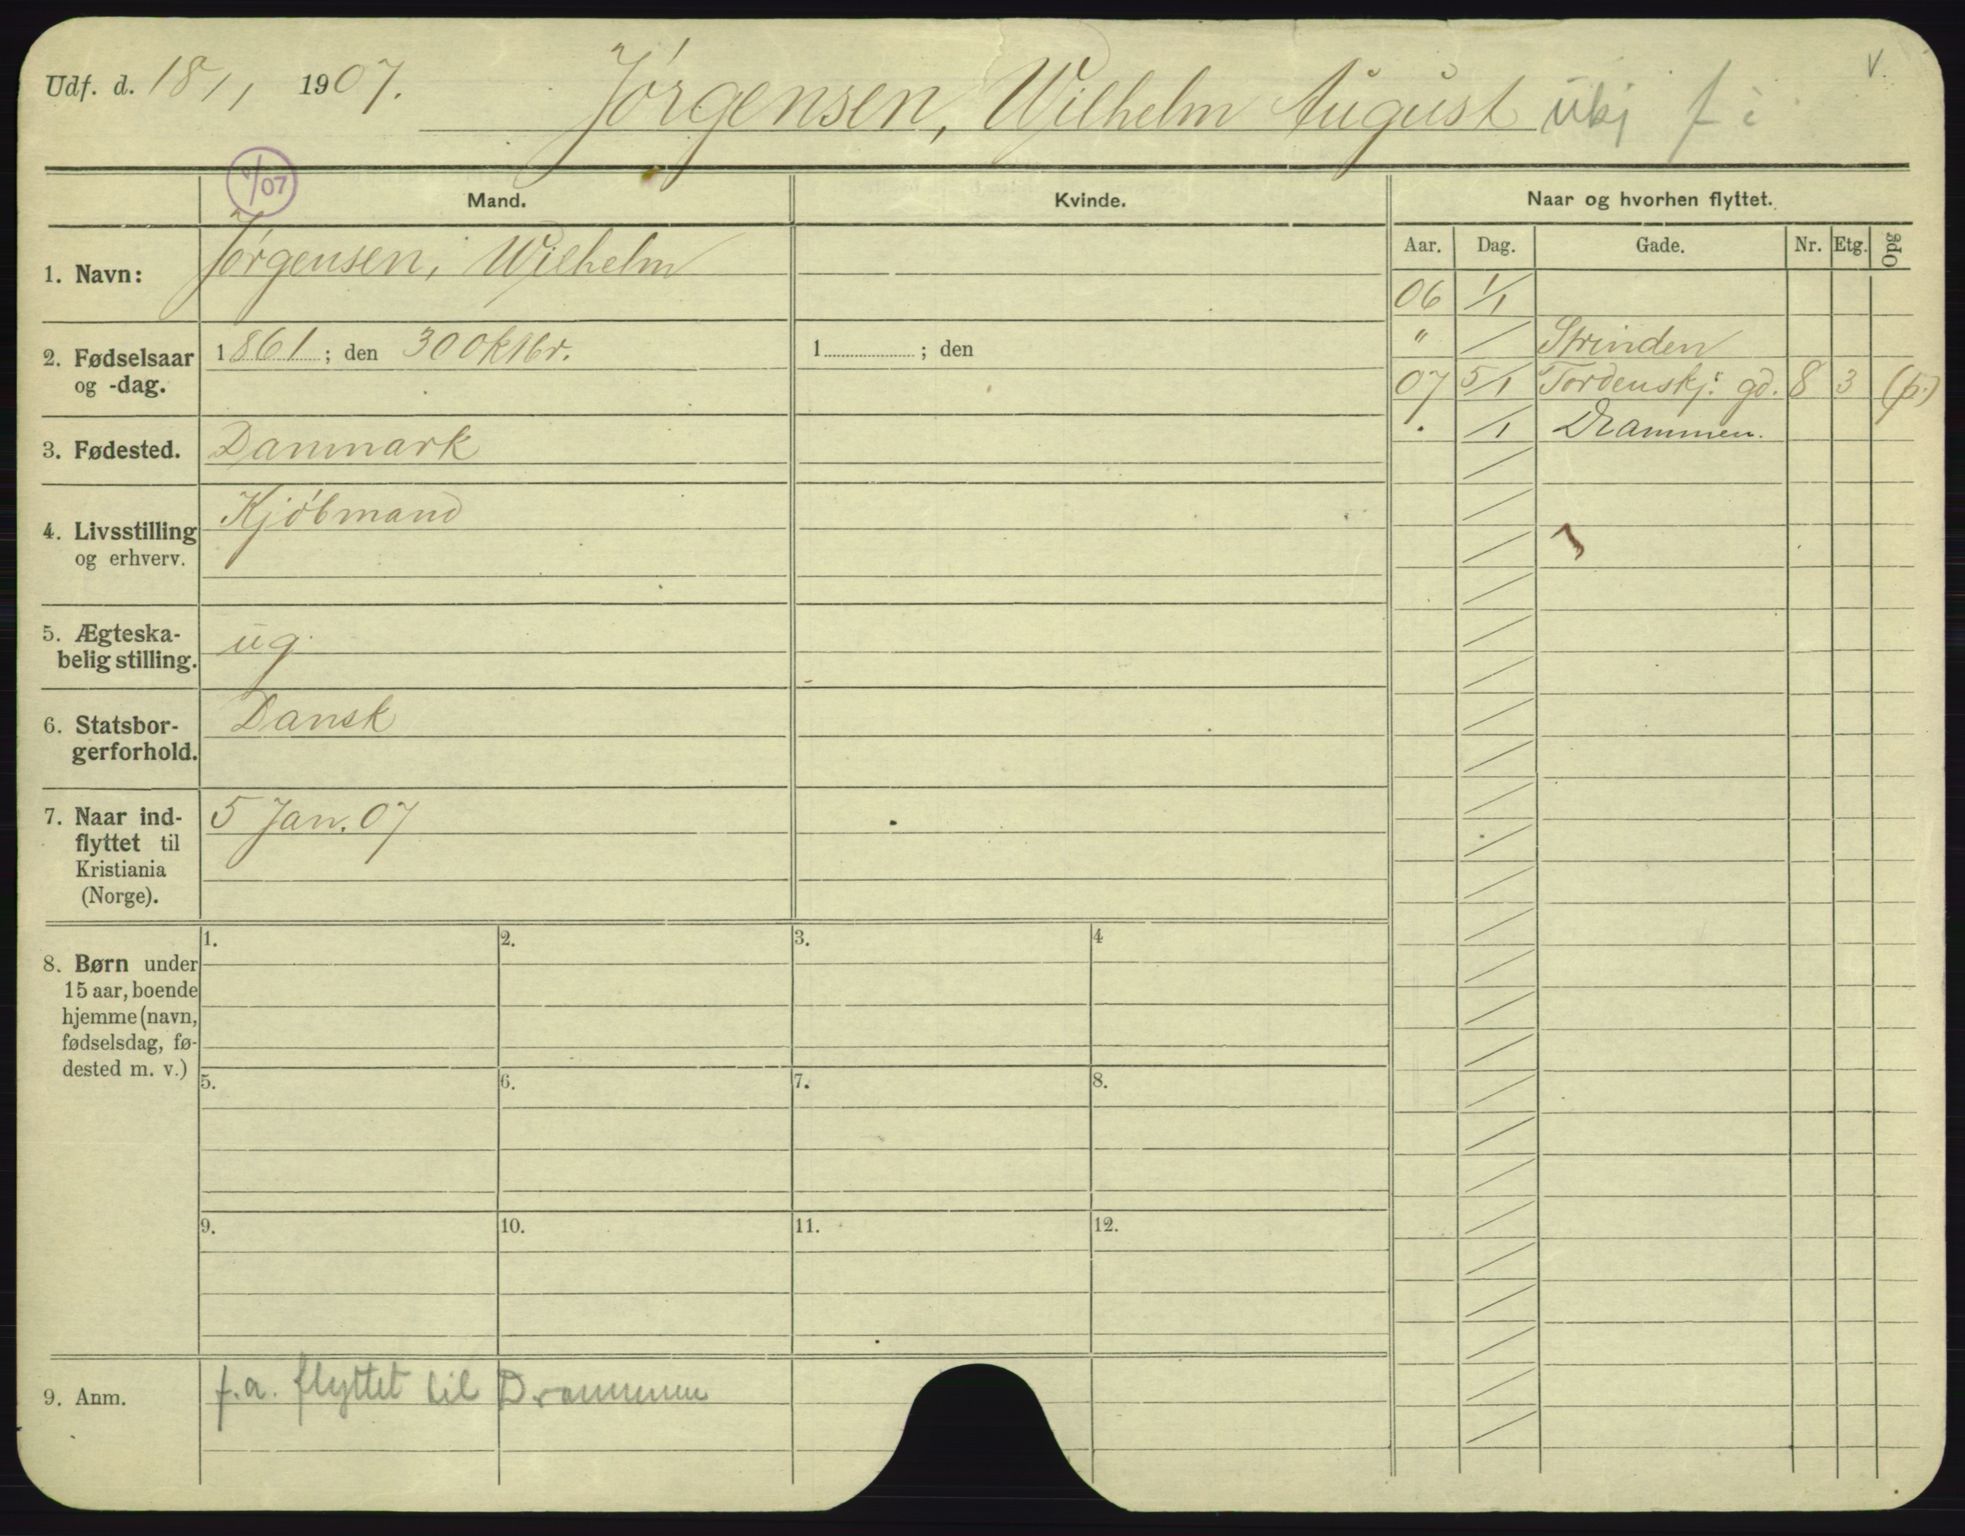 Udf. d. 18/1 1907. Jörgensen, Wilhelm August ubj f i V.
1/07
Mand. Kvinde. Naar og hvorhen flyttet.
Aar. Dag. Gade. Nr. Etg. Opg
1. Navn: Jörgensen, Wilhelm
06 1/1
2. Fødselsaar og -dag. 1861; den 30 Oktbr. 1 ; den
" / Strinden
07 5/1 Tordenskj: gd. 8 3 (p.)
. /1 Drammen.
3. Fødested. Danmark
4. Livsstilling og erhverv. Kjöbmand
5. Ægteska-
belig stilling. ug.
6. Statsbor-
gerforhold. Dansk
7. Naar ind-
flyttet til
Kristiania
(Norge). 5 Jan. 07
8. Børn under
15 aar, boende
hjemme (navn,
fødselsdag, fø-
dested m. v.)
1. 2. 3. 4
5. 6. 7. 8.
9. 10. 11. 12.
9. Anm. f.a. flyttet til Drammen